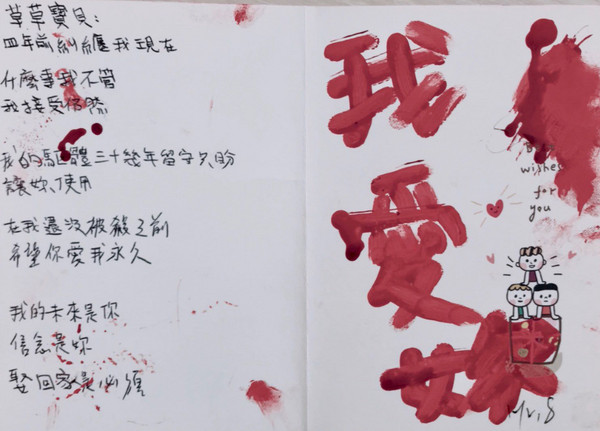 草草寶貝：
四年前糾纏我現在
什麼事我不管
我接受信際
我的軀體三十幾年留守只盼
讓妳使用
在我還沒被殺之前
希望你愛我永久
我的未來是你
信念是妳
娶回家是必須
我
愛
妳
wishes
for
you
Mr.S